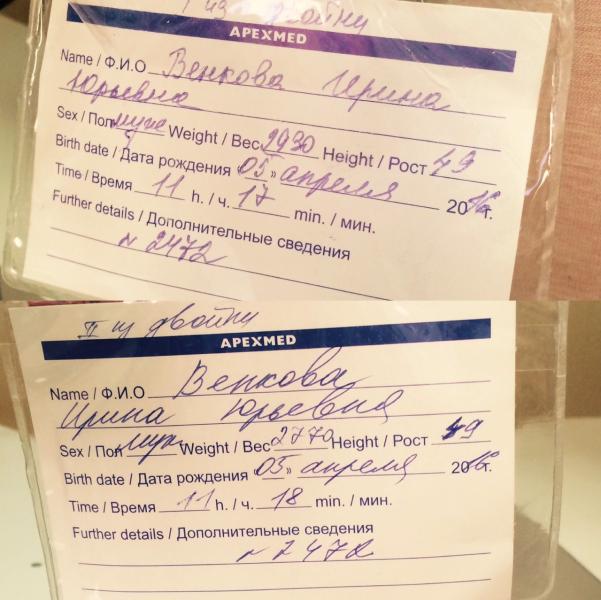 I из двойни
APEXMED
Name / Ф.И.О Венкова Ирина
Юрьевна
Sex / Пол муж Weight / Вес 2930 Height / Рост 49
Birth date / Дата рождения «05» апреля 2016г.
Time / Время 11 h. / ч. 17 min. / мин.
Further details / Дополнительные сведения
N 2472
II из двойни
APEXMED
Name / Ф.И.О Венкова
Ирина Юрьевна
Sex / Пол муж Weight / Вес 2770 Height / Рост 49
Birth date / Дата рождения «05» апреля 2016г.
Time / Время 11 h. / ч. 18 min. / мин.
Further details / Дополнительные сведения
N 2472